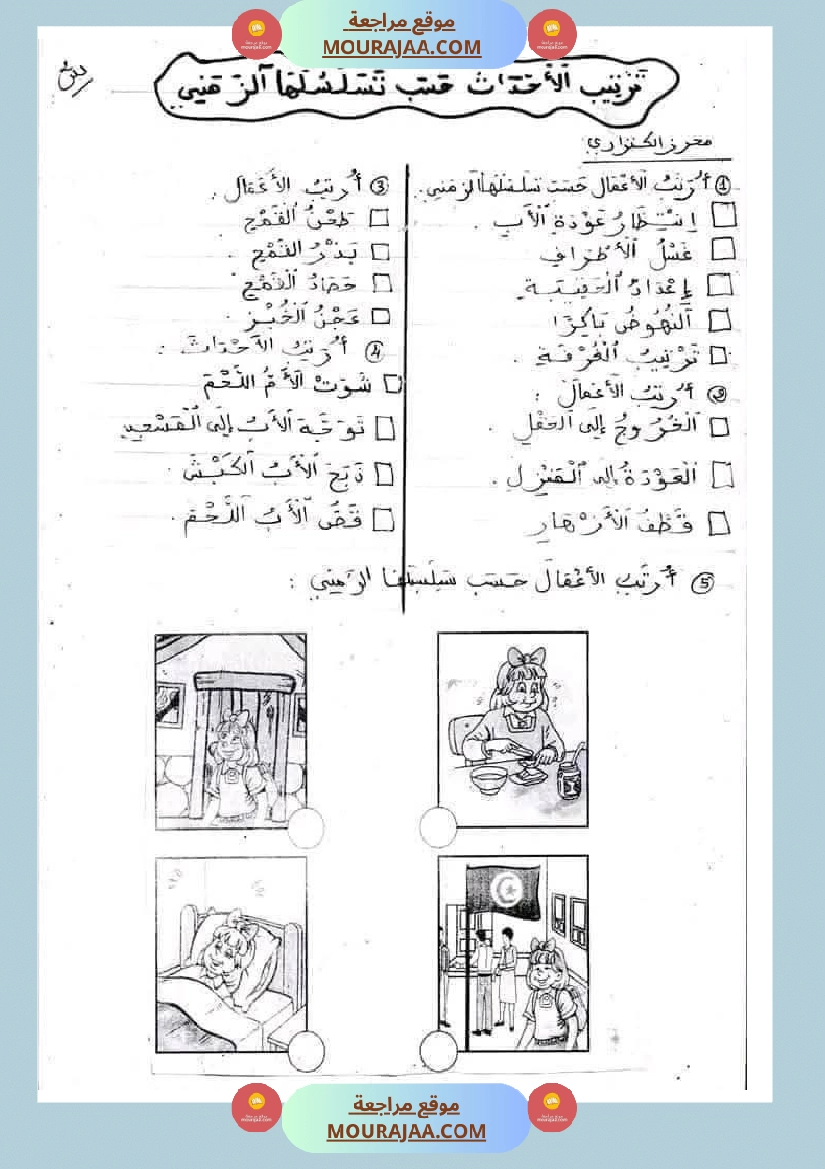 موقع مراجعة
MOURAJAA.COM
تَرْتِيبُ ٱلْأَحْدَاثِ حَسَبَ تَسَلْسُلِهَا ٱلزَّمَنِي
محرز الكنزاري
① أُرَتِّبُ الأَعْمَالَ حَسَبَ تَسَلْسُلِهَا الزَّمَنِي.
إِنْتِظَارُ عَوْدَةِ ٱلْأَبِ.
غَسْلُ ٱلْأَطْرَافِ
إِعْدَادُ ٱلْحَقِيبَةِ
ٱلنُّهُوضُ بَاكِرًا
تَرْتِيبُ ٱلْغُرْفَةِ.
② أُرَتِّبُ الأَعْمَالَ:
ٱلْخُرُوجُ إِلَى ٱلْحَقْلِ.
ٱلْعَوْدَةُ إِلَى ٱلْمَنْزِلِ.
قَطْفُ ٱلْأَزْهَارِ
③ أُرَتِّبُ الأَعْمَالَ.
طَحْنُ ٱلْقَمْحِ
بَذْرُ ٱلْقَمْحِ.
حَصَادُ ٱلْقَمْحِ
عَجْنُ ٱلْخُبْزِ.
④ أُرَتِّبُ الأَحْدَاثَ:
شَوَتْ ٱلْأُمُّ اللَّحْمَ
تَوَجَّهَ ٱلْأَبُ إِلَى ٱلْمَسْجِدِ
ذَبَحَ ٱلْأَبُ ٱلْكَبْشَ.
قَصَّ ٱلْأَبُ ٱللَّحْمَ.
⑤ أُرَتِّبُ الأَعْمَالَ حَسَبَ تَسَلْسُلِهَا الزَّمَنِي:
موقع مراجعة
MOURAJAA.COM